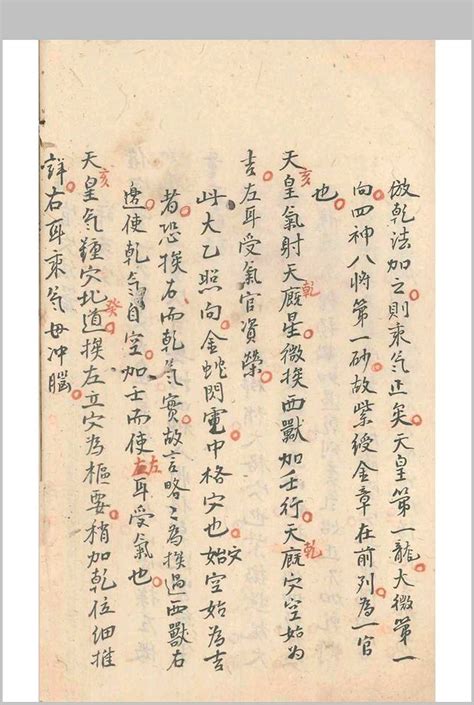 倣乾法加之則乘气正矣天皇第一龍大微第一
向四神八將第一砂故紫綬金章在前列為一官
也
天皇氣射天廐星微挨西獸加壬行天廐穴空始為
吉左耳受氣官資榮
此大乙照向金蛇閃電中格穴也始空始為吉
者恐挨右而乾气實故言略々為挨過西獸右
邊使乾气自空加壬而使左耳受氣也
天皇气鍾穴北道挨左立穴為樞要稍加乾位細推
詳右耳乘气毋冲腦
亥
乾
乾
穴
左
亥
癸